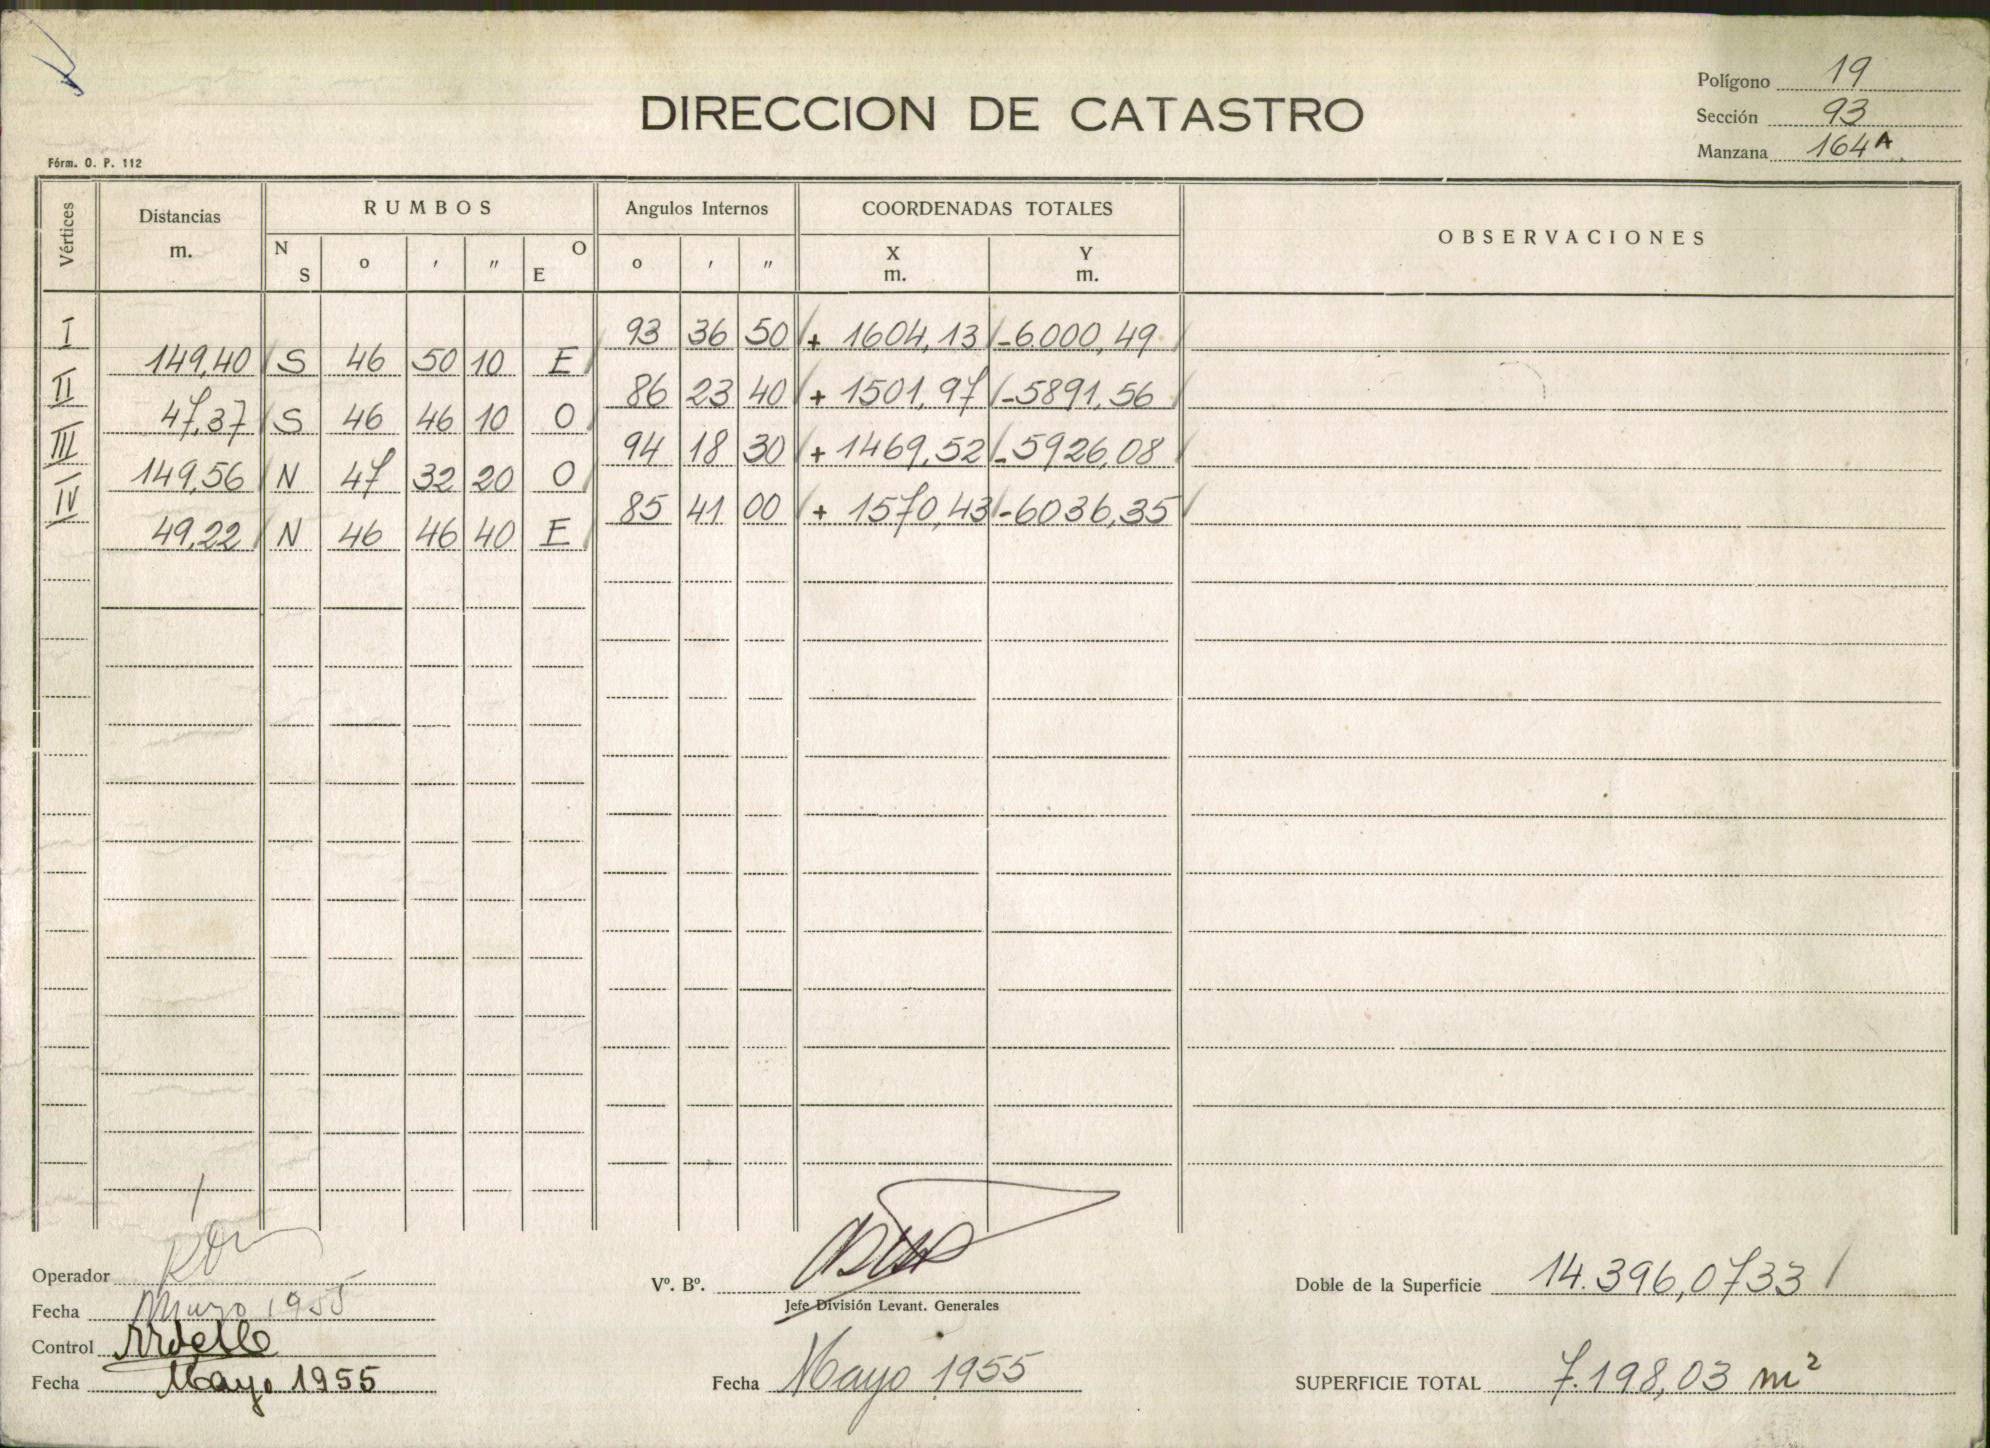 Polígono 19
DIRECCION DE CATASTRO
Sección 93
Manzana 164A
Fórm. O. P. 112
Vértices Distancias m. RUMBOS N S o ′ ″ O E Angulos Internos o ′ ″ COORDENADAS TOTALES X m. Y m. OBSERVACIONES
I 93 36 50 + 1604,13 -6000,49
149,40 S 46 50 10 E
II 86 23 40 + 1501,97 -5891,56
47,37 S 46 46 10 O
III 94 18 30 + 1469,52 -5926,08
149,56 N 47 32 20 O
IV 85 41 00 + 1570,43 -6036,35
49,22 N 46 46 40 E
Operador
Vº. Bº.
Doble de la Superficie 14.396,0733
Jefe División Levant. Generales
Fecha Mayo 1955
Control
Fecha Mayo 1955
Fecha Mayo 1955
SUPERFICIE TOTAL 7.198,03 m²